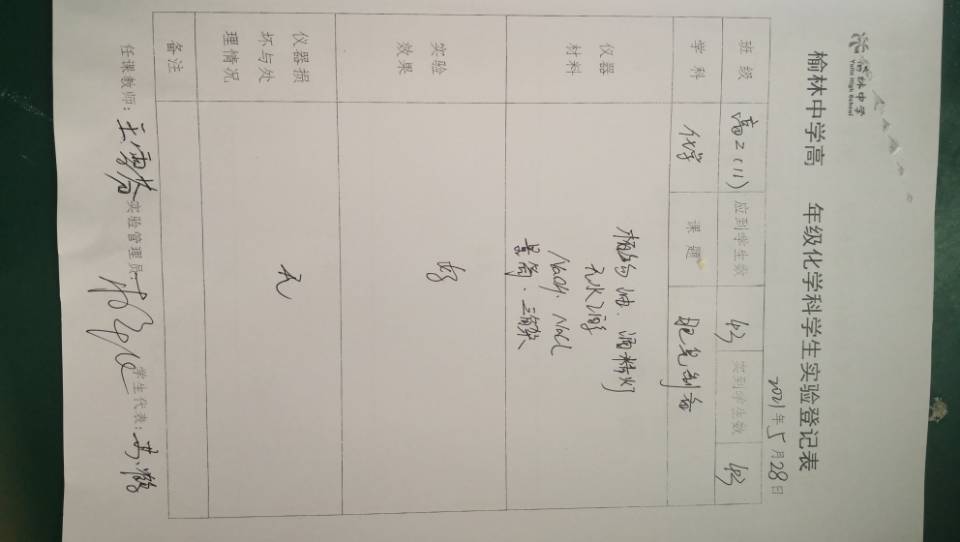 榆林中学
Yulin High School
榆林中学高 年级化学科学生实验登记表
2021年5月28日
班级 高二(11) 应到学生数 43 实到学生数 43
学科 化学 课题 肥皂制备
仪器材料
植物油、酒精灯
无水乙醇
NaOH、NaCl
蒸发皿、三脚架
实验效果 好
仪器损坏与处理情况 无
备注
任课教师: 实验管理员: 学生代表: